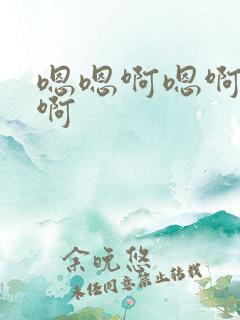 嗯嗯啊嗯啊
啊
余晚悠
未经同意禁止转载